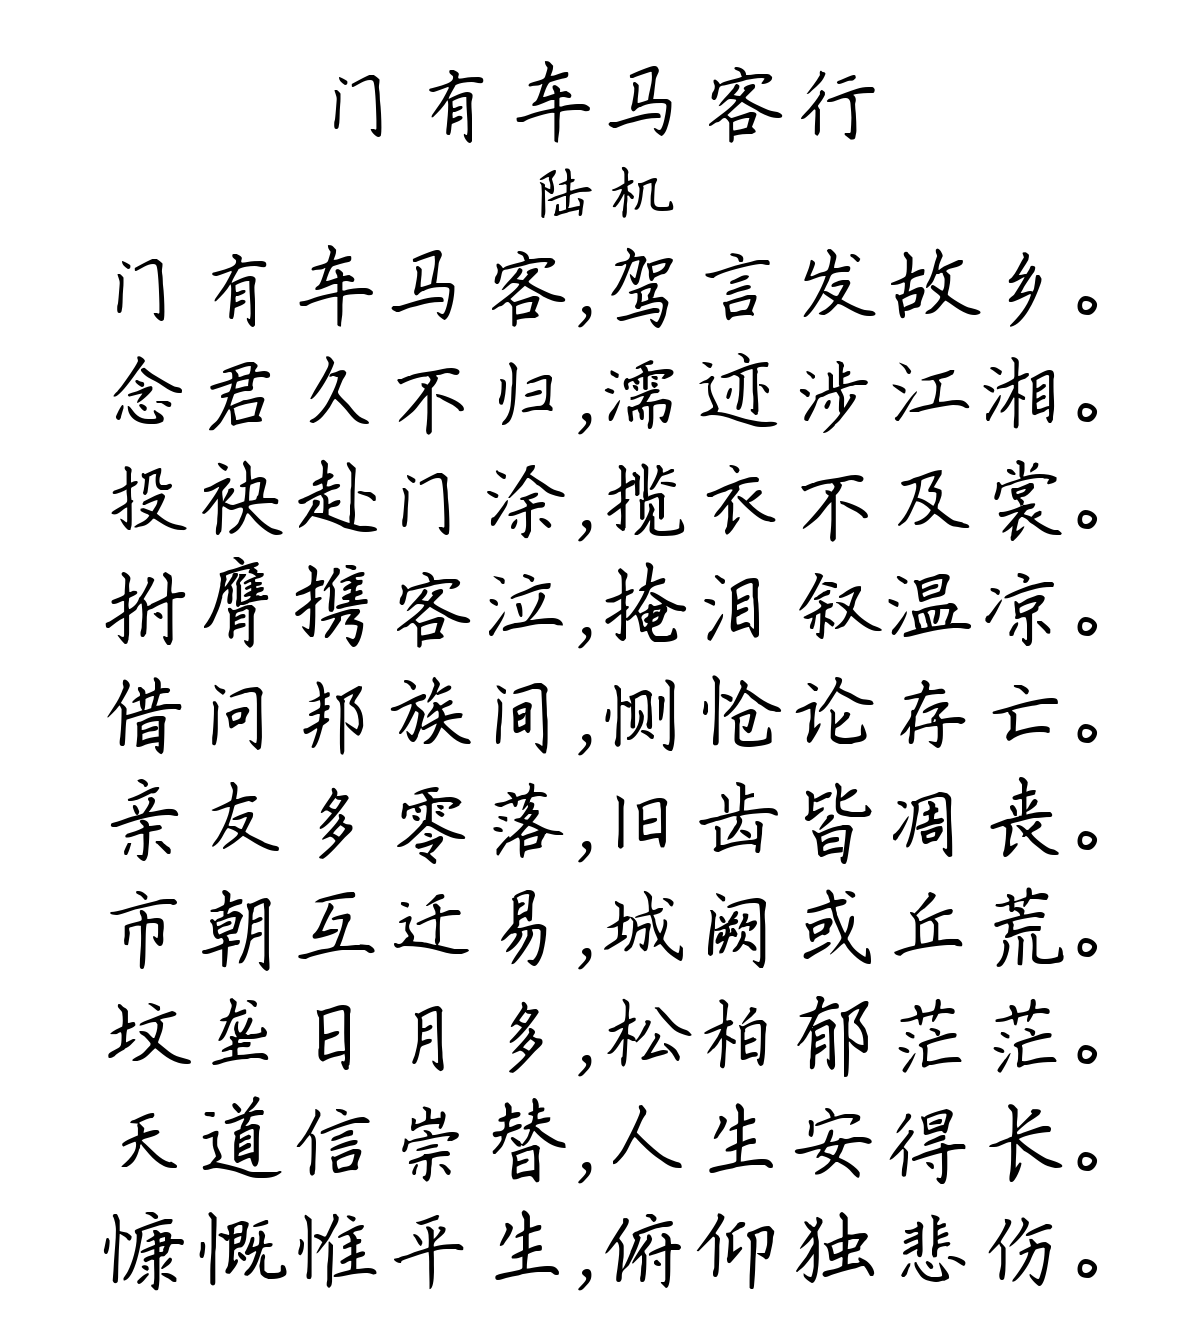 门有车马客行
陆机
门有车马客,驾言发故乡。
念君久不归,濡迹涉江湘。
投袂赴门涂,揽衣不及裳。
拊膺携客泣,掩泪叙温凉。
借问邦族间,恻怆论存亡。
亲友多零落,旧齿皆凋丧。
市朝互迁易,城阙或丘荒。
坟垄日月多,松柏郁茫茫。
天道信崇替,人生安得长。
慷慨惟平生,俯仰独悲伤。